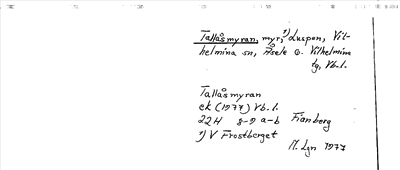 Tallåsmyran, myr, ¹) Luspen, Vil-
helmina sn, Åsele o. Vilhelmina
tg, Vb. l.
Tallåsmyran
ek (1977) Vb. l.
22H 8-9 a-b Fianberg
¹) V Frostberget
M. Lgn 1977